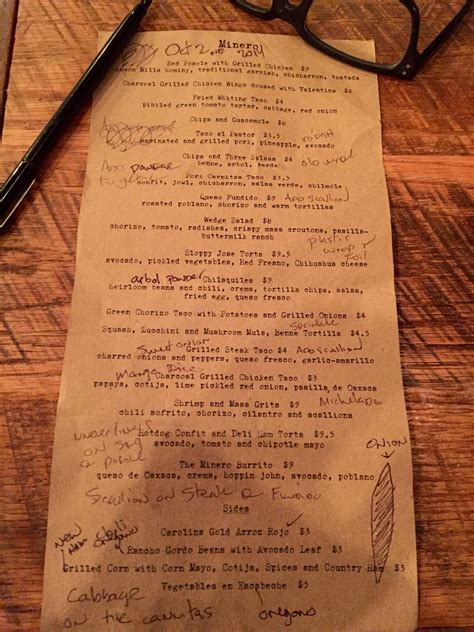 Minero
Oct 2nd 2014
Red Pozole with Grilled Chicken $9
Anson Mills hominy, traditional garnish, chicharron, tostada
Charcoal Grilled Chicken Wings doused with Valentina $8
Fried Whiting Taco $4
pickled green tomato tartar, cabbage, red onion
Chips and Guacamole $8
Taco al Pastor $3.5
radish
marinated and grilled pork, pineapple, avocado
Chips and Three Salsas $4
benne, arbol, verde
powder
Pork Carnitas Taco $3.5
confit, jowl, chicharron, salsa verde, chilmole
Queso Fundido $9
Add scallion
roasted poblano, chorizo and warm tortillas
Wedge Salad $8
chorizo, tomato, radishes, crispy masa croutons, pasilla-
buttermilk ranch
plastic
wrap
foil
Sloppy Jose Torta $9.5
avocado, pickled vegetables, Red Fresno, Chihuahua cheese
arbol powder
Chilaquiles $9
heirloom beans and chili, crema, tortilla chips, salsa,
fried egg, queso fresco
Green Chorizo Taco with Potatoes and Grilled Onions $4
Squash, Zucchini and Mushroom Mula, Benne Tortilla $4.5
Sweet onion
Grilled Steak Taco $4
Add scallion
charred onions and peppers, queso fresco, garlic-amarillo
Mango Dice
Charcoal Grilled Chicken Taco $3
papaya, cotija, lime pickled red onion, pasilla de Oaxaca
Shrimp and Masa Grits $9
Michelada
chili sofrito, chorizo, cilantro and scallions
underliners
on
Hotdog Confit and Deli Ham Torta $9.5
avocado, tomato and chipotle mayo
ONION
The Minero Burrito $9
queso de Oaxaca, crema, hoppin john, avocado, poblano
Scallion on Steak & Fundido
Sides
new
Carolina Gold Arroz Rojo $3
Rancho Gordo Beans with Avocado Leaf $3
Grilled Corn with Corn Mayo, Cotija, Spices and Country Ham $3
Vegetables en Escabeche $5
Cabbage
on the carnitas
oregano